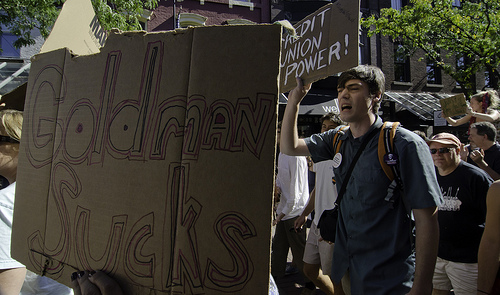 Goldman
Sucks
CREDIT
UNION
POWER!
We